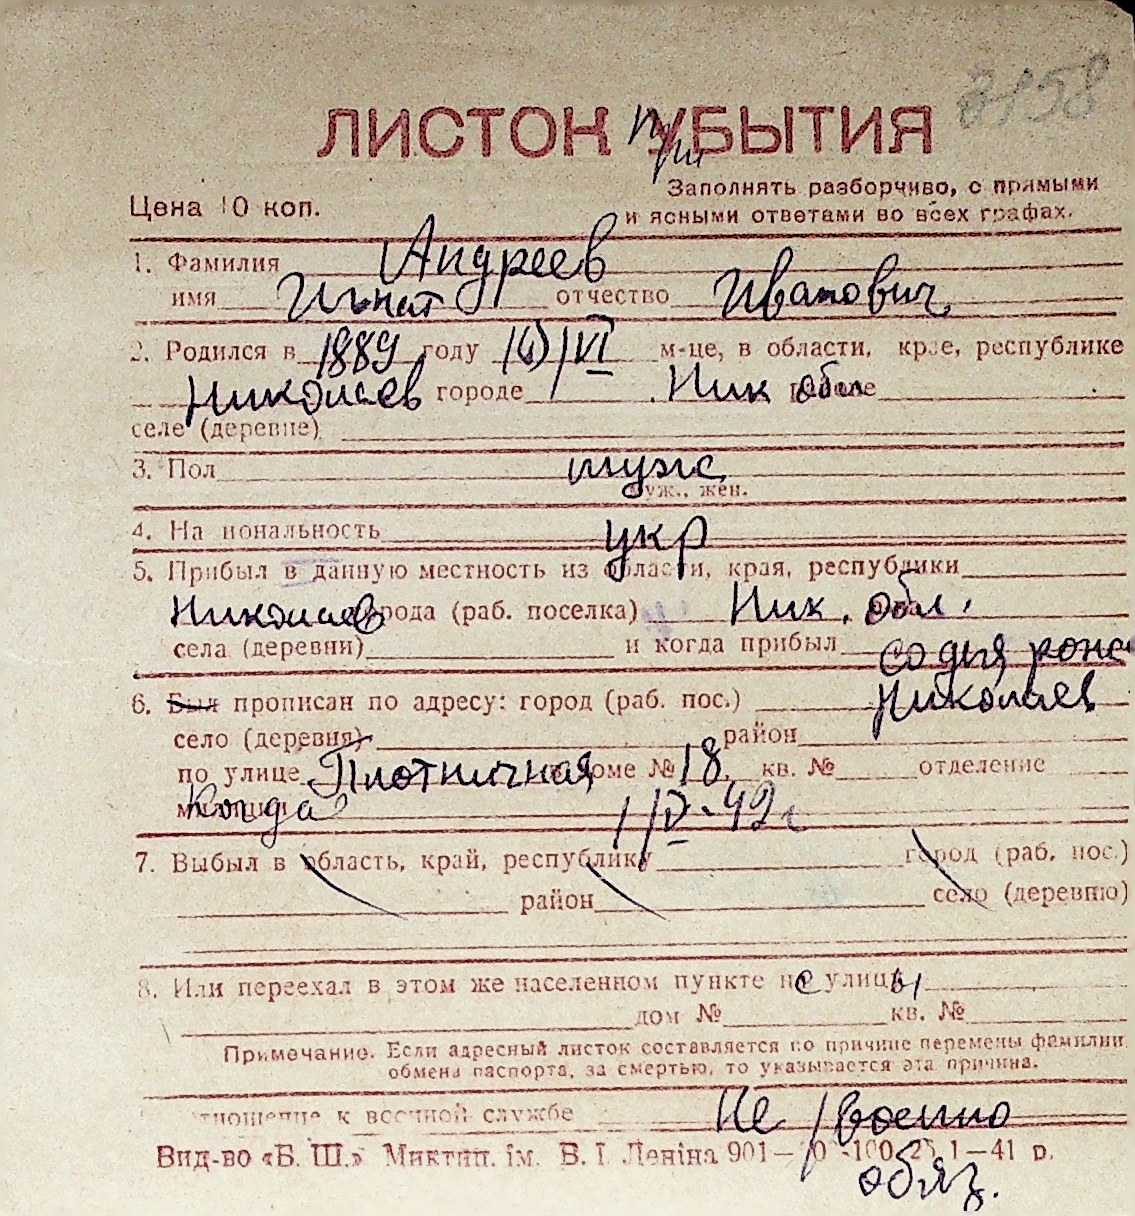 3158
ЛИСТОК УБЫТИЯ
при
Цена 10 коп.
Заполнять разборчиво, с прямыми
и ясными ответами во всех графах.
1. Фамилия Андреев
имя Игнат отчество Иванович
2. Родился в 1889 году VI м-це, в области, крае, республике
Николаев городе Ник обл
селе (деревне)
3. Пол муж
муж., жен.
4. Национальность укр
5. Прибыл в данную местность из области, края, республики
Николаев города (раб. поселка) Ник. обл.
села (деревни) и когда прибыл со дня рожд
6. Был прописан по адресу: город (раб. пос.) Николаев
село (деревня) район
по улице Плотничная доме № 18 кв. № отделение
милиции Когда 1/IV-42 г
7. Выбыл в область, край, республику город (раб. пос.)
район село (деревню)
8. Или переехал в этом же населенном пункте с улицы
дом № кв. №
Примечание. Если адресный листок составляется по причине перемены фамилии,
обмена паспорта, за смертью, то указывается эта причина.
Отношение к военной службе не/военно
обяз.
Вид-во «Б. Ш.» Миктип. ім. В. І. Леніна 901— 1—41 р.